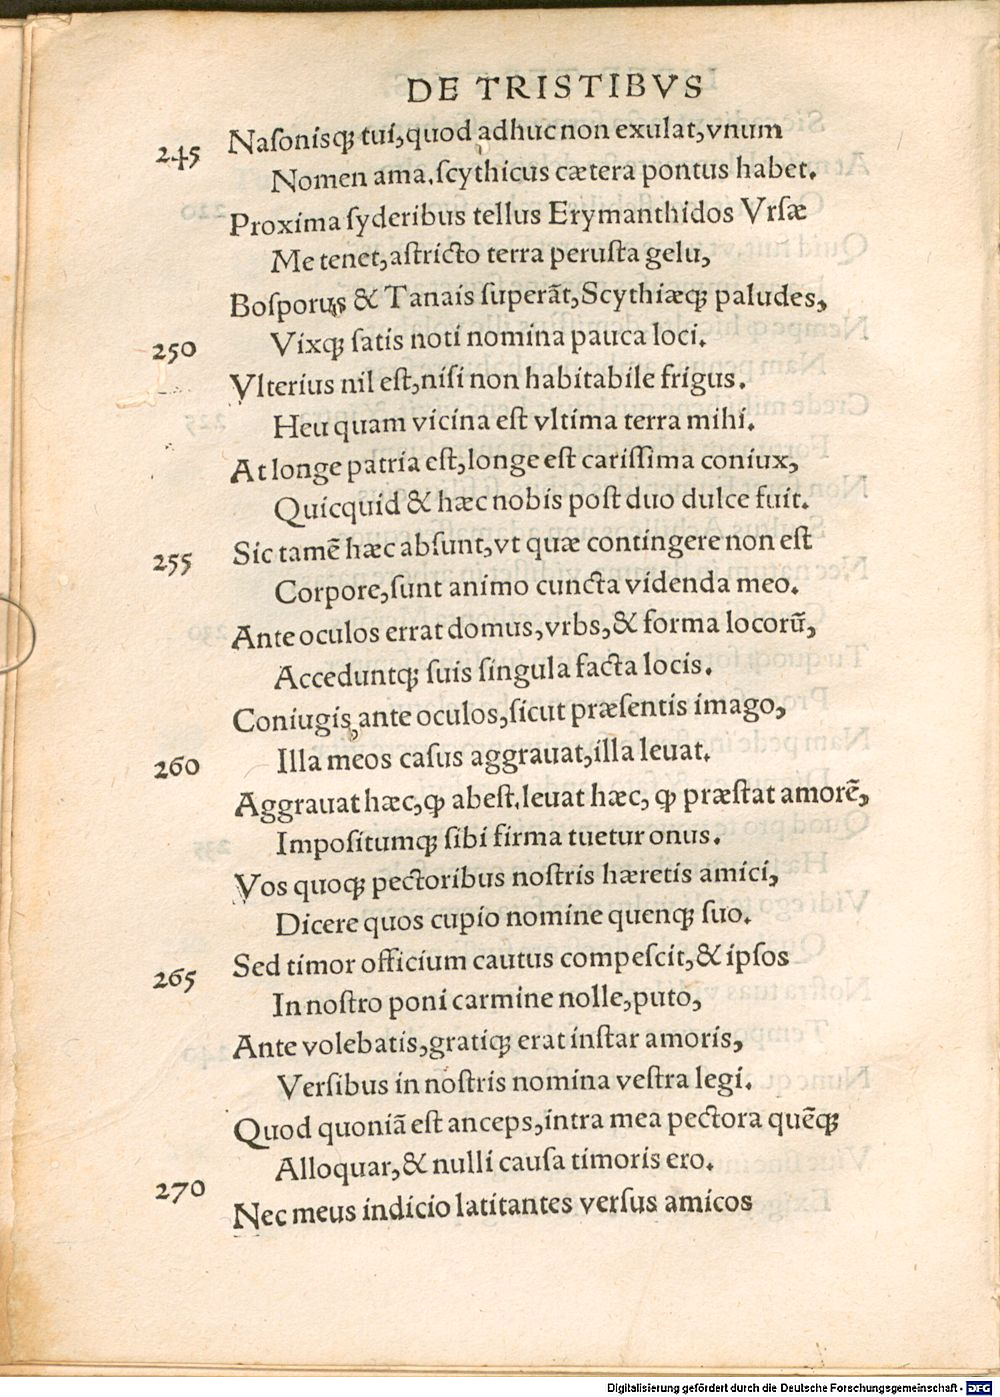 DE TRISTIBVS
Naſonisq; tui, quod adhuc non exulat, vnum
245
Nomen ama. ſcythicus cætera pontus habet.
Proxima ſyderibus tellus Erymanthidos Vrſæ
Me tenet, aſtricto terra peruſta gelu,
Boſporus & Tanais ſuperāt, Scythiæq; paludes,
250 Vixq; ſatis noti nomina pauca loci.
Vlterius nil eſt, niſi non habitabile frigus.
Heu quam vicina eſt vltima terra mihi.
At longe patria eſt, longe eſt cariſſima coniux,
Quicquid & hæc nobis poſt duo dulce fuit.
255 Sic tamē hæc abſunt, vt quæ contingere non eſt
Corpore, ſunt animo cuncta videnda meo.
Ante oculos errat domus, vrbs, & forma locorū,
Acceduntq; ſuis ſingula facta locis.
Coniugis ante oculos, ſicut præſentis imago,
260 Illa meos caſus aggrauat, illa leuat.
Aggrauat hæc, ꝙ abeſt. leuat hæc, ꝙ præſtat amorē,
Impoſitumq; ſibi firma tuetur onus.
Vos quoq; pectoribus noſtris hæretis amici,
Dicere quos cupio nomine quenq; ſuo.
265 Sed timor officium cautus compeſcit, & ipſos
In noſtro poni carmine nolle, puto,
Ante volebatis, gratiq; erat inſtar amoris,
Verſibus in noſtris nomina veſtra legi.
Quod quoniā eſt anceps, intra mea pectora quēq;
Alloquar, & nulli cauſa timoris ero.
270
Nec meus indicio latitantes verſus amicos
Digitalisierung gefördert durch die Deutsche Forschungsgemeinschaft - DFG